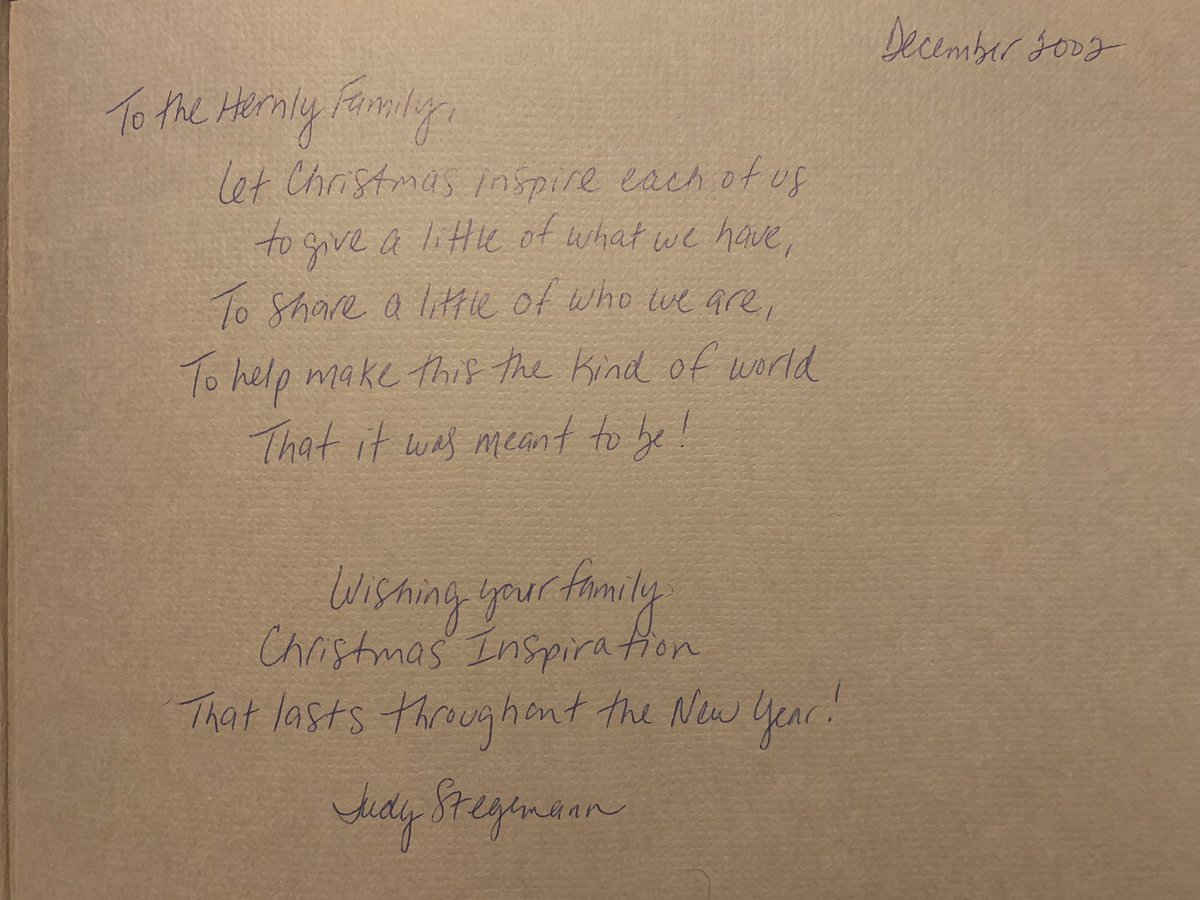 December 2002
To the Hernly Family,
Let Christmas inspire each of us
to give a little of what we have,
To share a little of who we are,
To help make this the kind of world
That it was meant to be!
Wishing your family
Christmas Inspiration
That lasts throughout the New Year!
Judy Stegemann